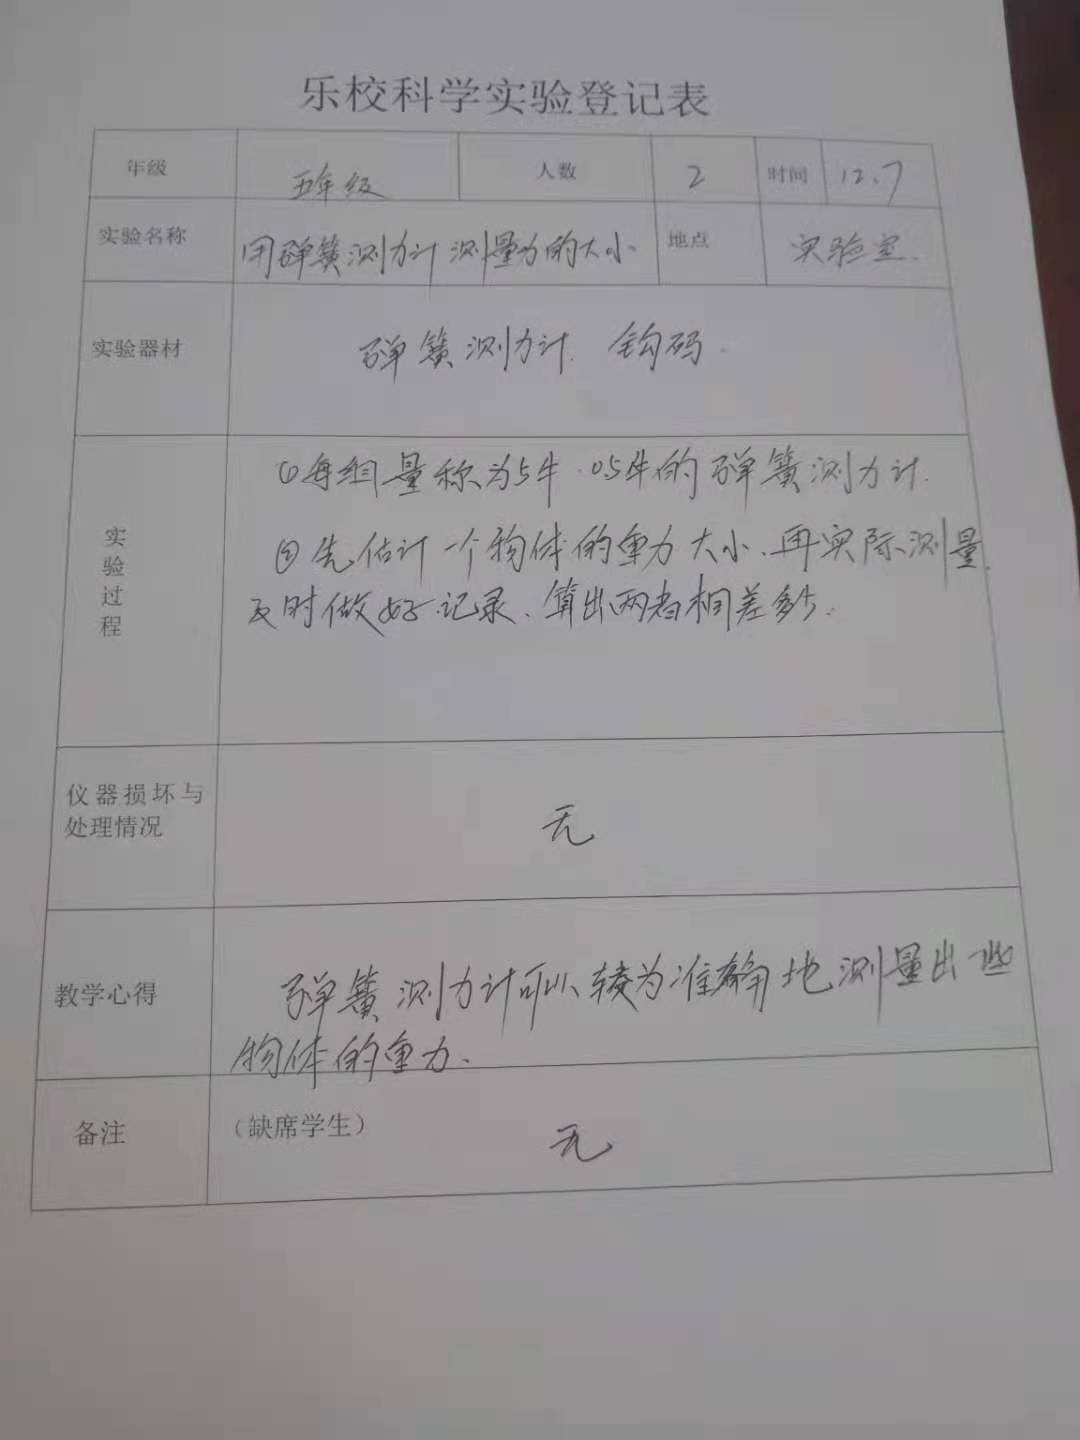 乐校科学实验登记表
年级 五年级 人数 2 时间 12.7
实验名称 用弹簧测力计测量力的大小 地点 实验室.
实验器材 弹簧测力计. 钩码.
实验过程
①每组量称为5牛.05牛的弹簧测力计.
②先估计一个物体的重力大小.再实际测量.
及时做好记录.算出两者相差多少.
仪器损坏与
处理情况
无
教学心得
弹簧测力计可以较为准确地测量出一些
物体的重力.
备注 (缺席学生) 无